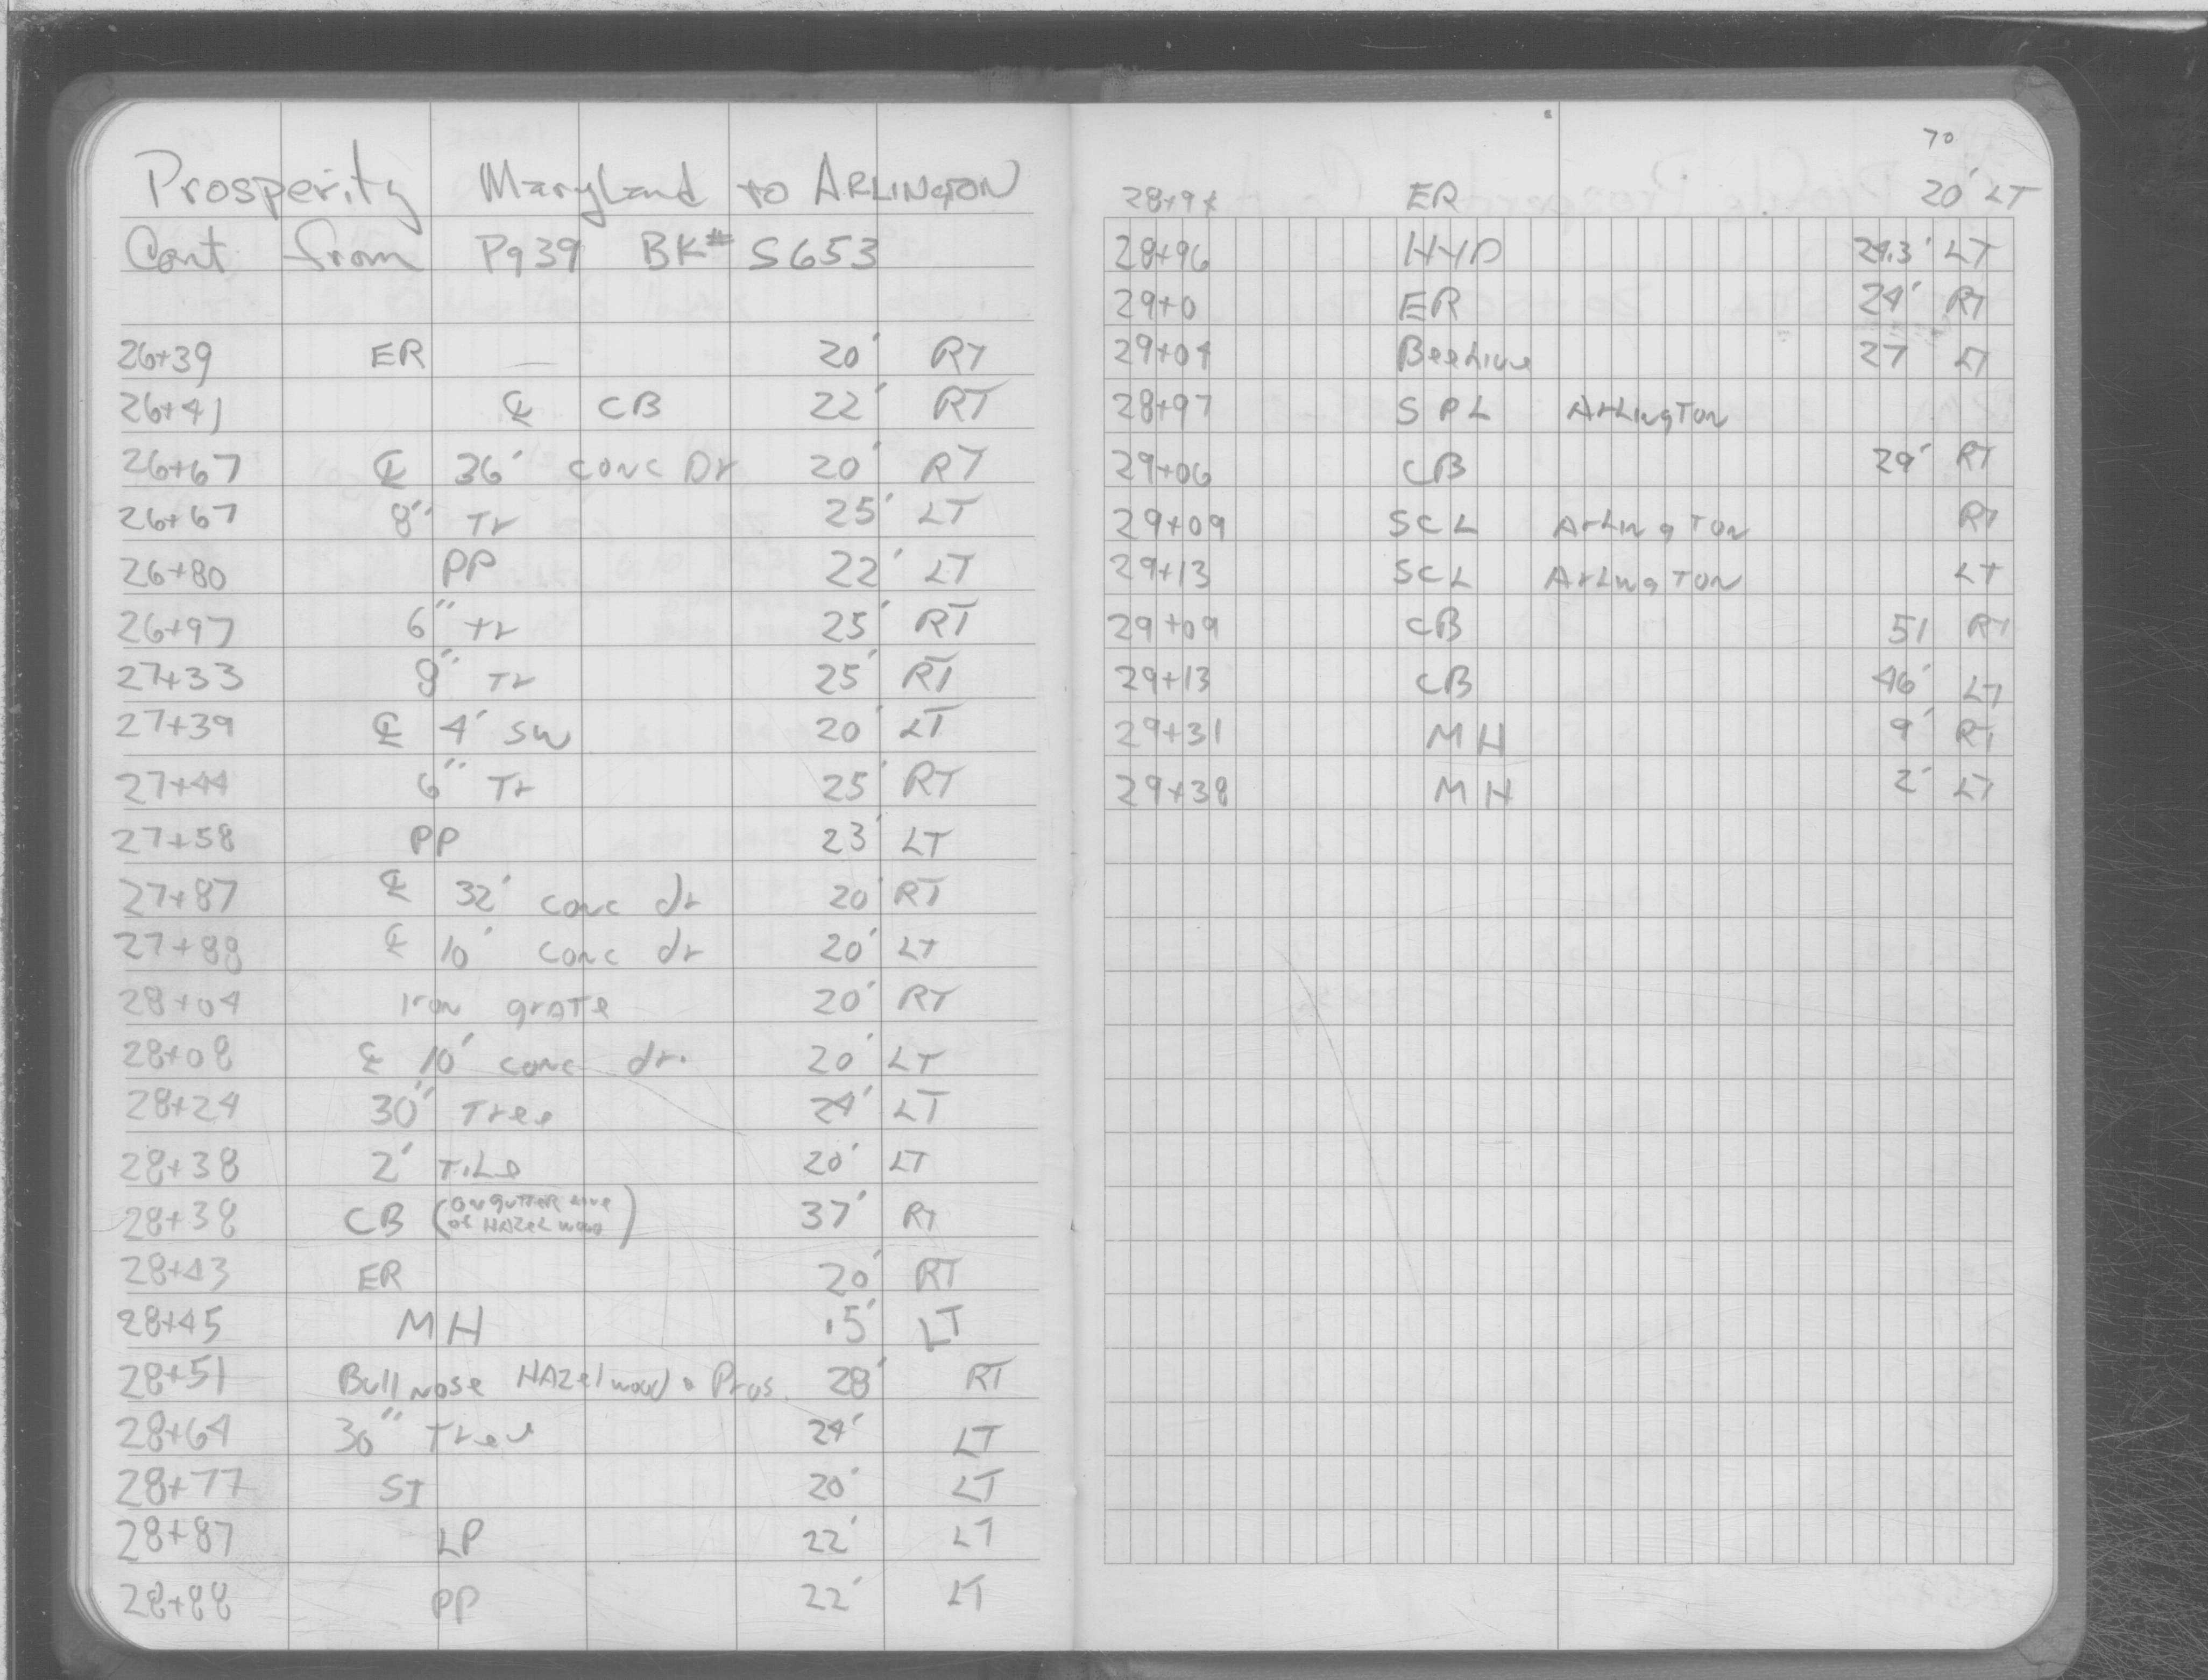 Prosperity Maryland to ARLINGTON
Cont from Pg 39 BK# S653
26+39 ER — 20' RT
26+41 ℄ CB 22' RT
26+67 ℄ 36' conc Dr 20' RT
26+67 8" Tr 25' LT
26+80 PP 22' LT
26+97 6" tr 25' RT
27+33 8" Tr 25' RT
27+39 ℄ 4' SW 20' LT
27+44 6" Tr 25' RT
27+58 PP 23' LT
27+87 ℄ 32' conc dr 20' RT
27+88 ℄ 10' conc dr 20' LT
28+04 Iron grATe 20' RT
28+08 ℄ 10' conc dr. 20' LT
28+24 30" Tree 24' LT
28+38 2' TiLe 20' LT
28+38 CB (On gutter Line of HAZeL wood) 37' RT
28+43 ER 20' RT
28+45 MH 15' LT
28+51 Bull nose HAZel wood & Pros. 28' RT
28+64 30" Tree 24' LT
28+77 SI 20' LT
28+87 LP 22' LT
28+88 PP 22' LT
70
ER 20' LT
28+96 HYD 24.3' LT
29+0 ER 24' RT
29+04 Beehive 27 LT
28+97 SPL ArLingTon
29+06 CB 29' RT
29+09 SCL ArLingTon RT
29+13 SCL ArLingTon LT
29+09 CB 51 RT
29+13 CB 46' LT
29+31 MH 9' RT
29+38 MH 2' LT